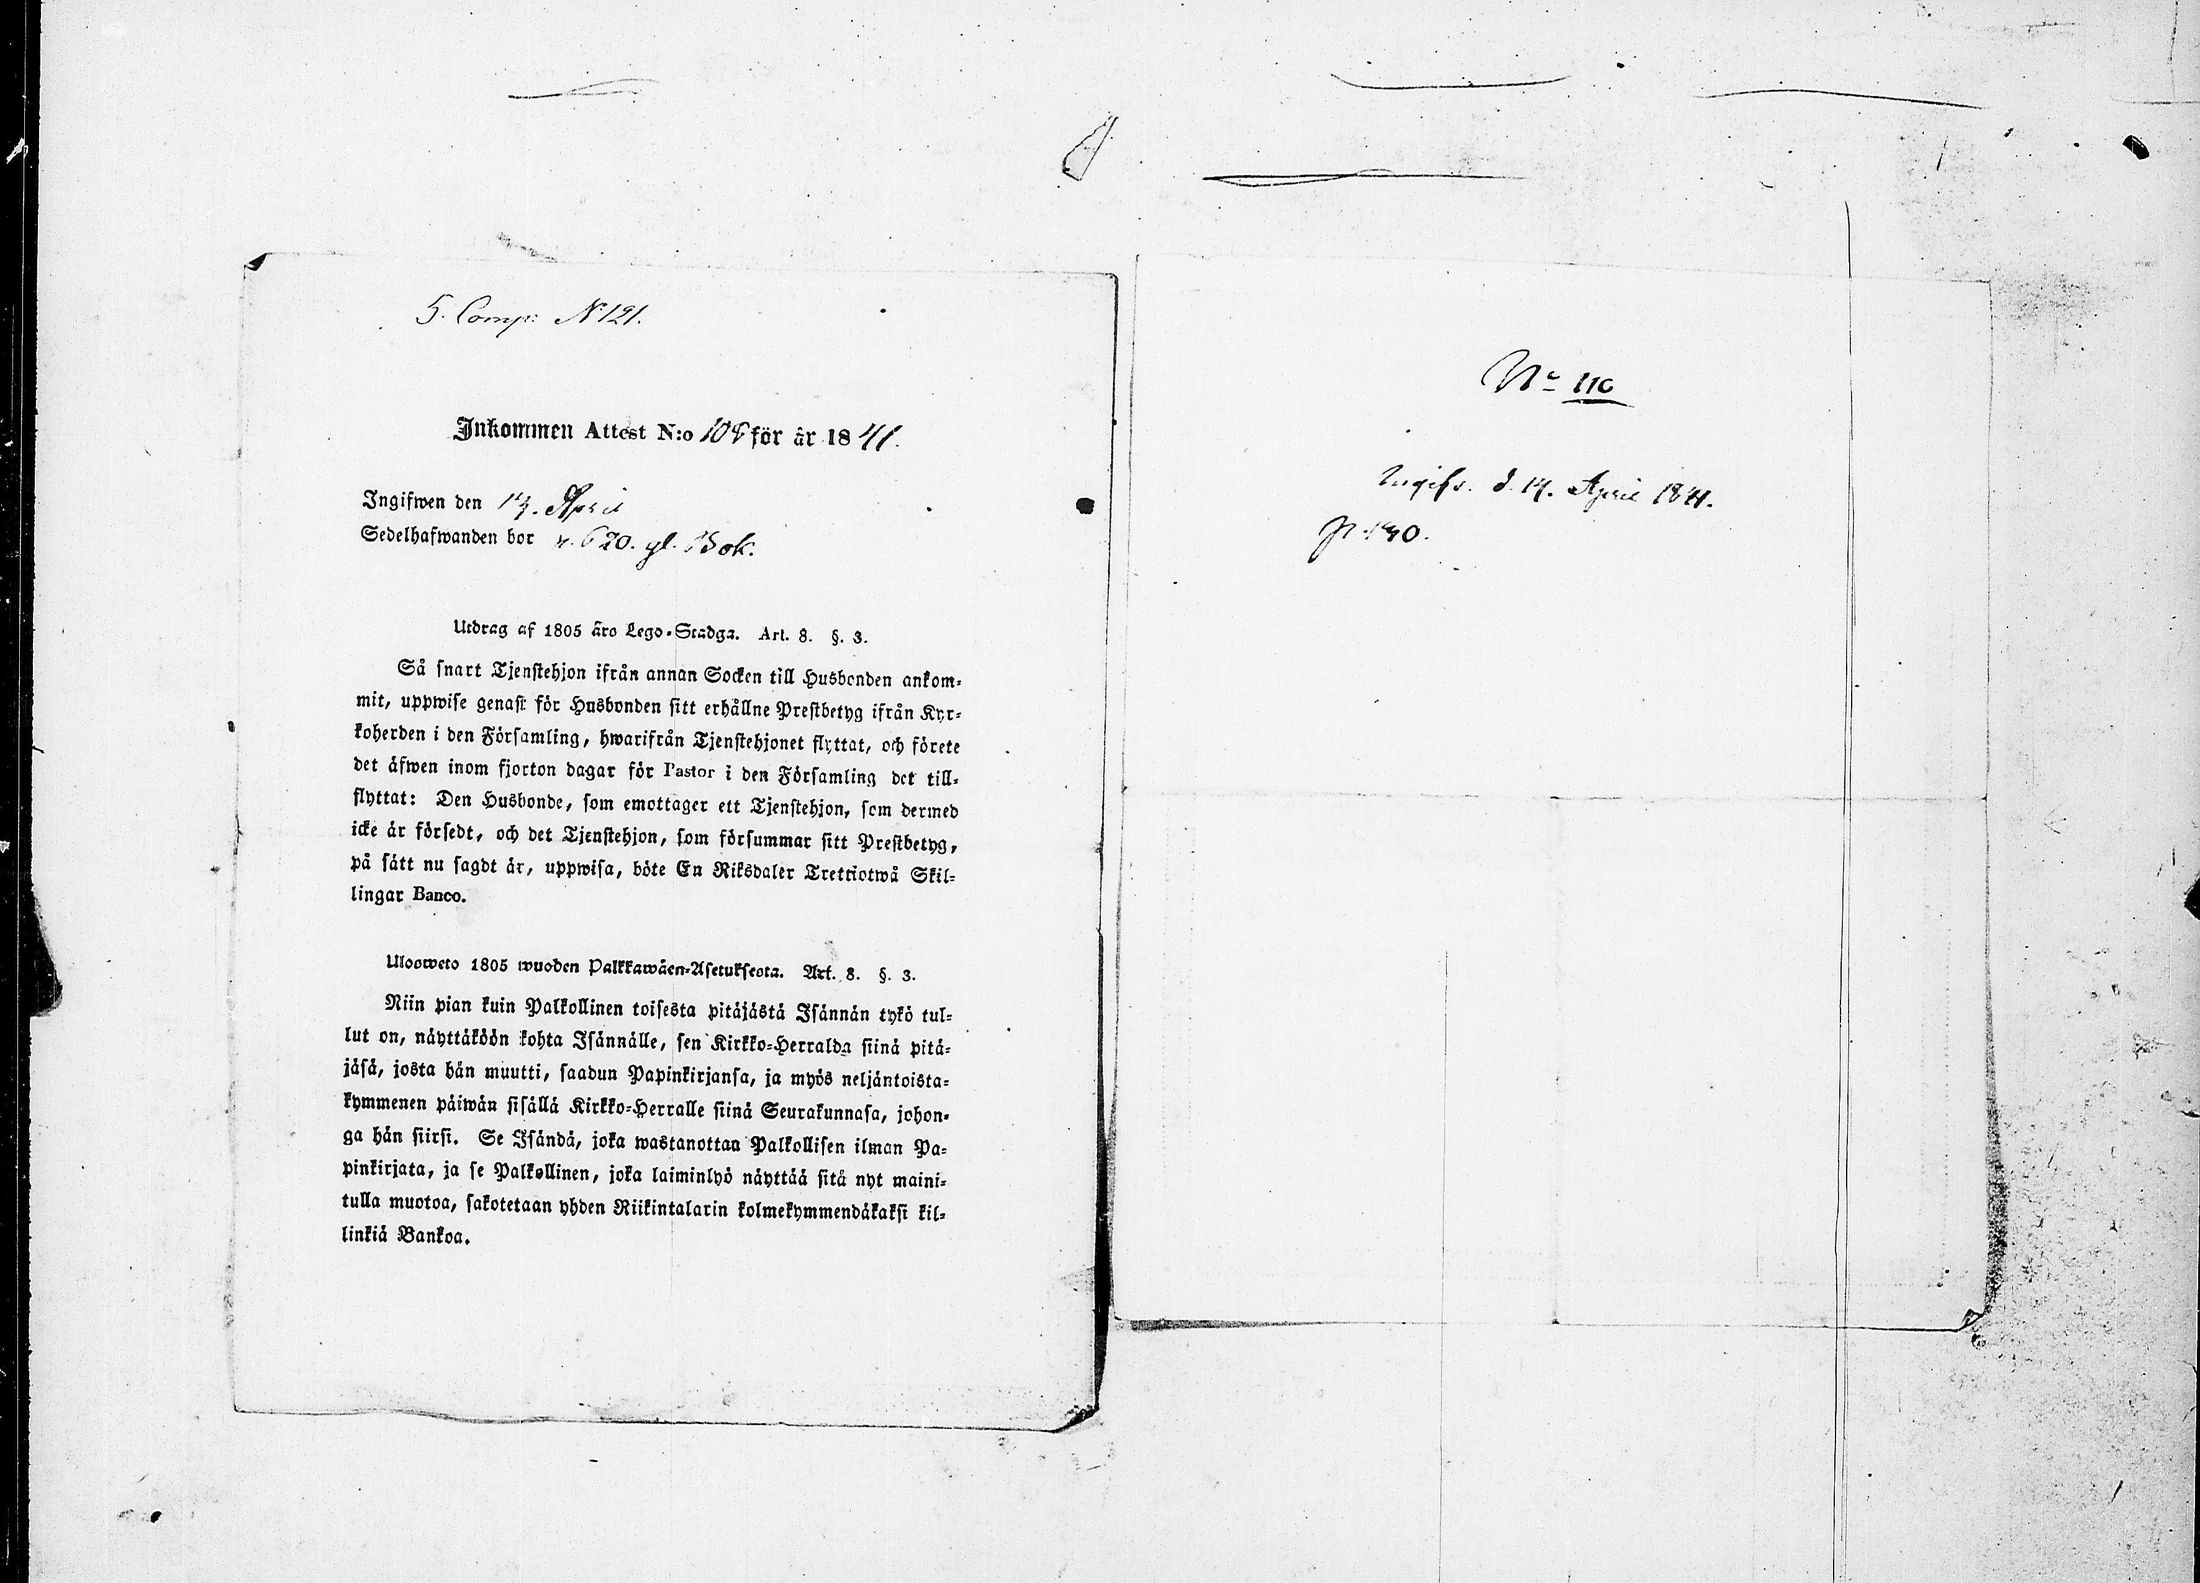 5. Comp: N 121.
Inkommen Attest N:o 108 för år 1841.
Ingifwen den 13. April
Sedelhafwanden bor p. 620. gl. Bok.
Utdrag af 1805 års Lego-Stadga. Art. 8. §. 3.
Så snart Tjenstehjon ifrån annan Socken till Husbonden ankom-
mit, uppwise genast för Husbonden sitt erhållne Prestbetyg ifrån Kyr-
koherden i den Församling, hwarifrån Tjenstehjonet flyttat, och förete
det äfwen inom fjorton dagar för Pastor i den Församling det till-
flyttat: Den Husbonde, som emottager ett Tjenstehjon, som dermed
icke är försedt, och det Tjenstehjon, som försummar sitt Prestbetyg,
på sätt nu sagdt är, uppwisa, böte En Riksdaler Trettiotwå Skil-
lingar Banco.
Ulosweto 1805 wuoden Palkkawäen-Asetuksesta. Art. 8. §. 3.
Niin pian kuin Palkollinen toisesta pitäjästä Isännän tykö tul-
lut on, näyttäköön kohta Isännälle, sen Kirkko-Herralda siinä pitä-
jäsä, josta hän muutti, saadun Papinkirjansa, ja myös neljäntoista-
kymmenen päiwän sisällä Kirkko-Herralle siinä Seurakunnasa, johon-
ga hän siirsi. Se Isändä, joka wastanottaa Palkollisen ilman Pa-
pinkirjata, ja se Palkollinen, joka laiminlyö näyttää sitä nyt maini-
tulla muotoa, sakotetaan yhden Riikintalarin kolmekymmendäkaksi kil-
linkiä Bankoa.
No 110
Ingifv. d. 14. April 1841.